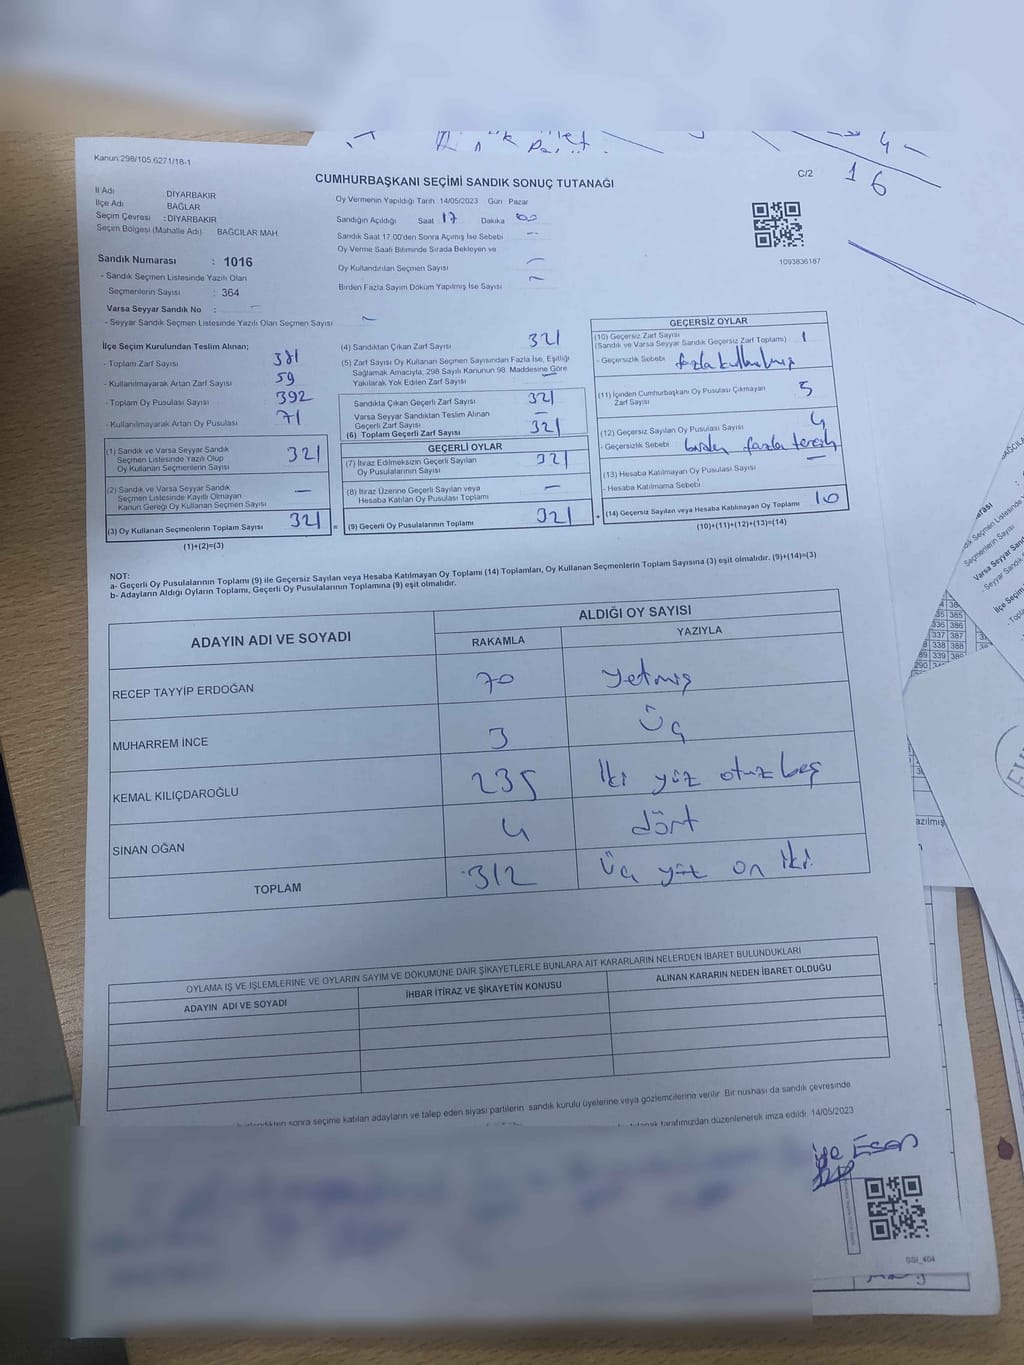 Kanun:298/105,6271/18-1
C/2
16
CUMHURBAŞKANI SEÇİMİ SANDIK SONUÇ TUTANAĞI
İl Adı DİYARBAKIR
İlçe Adı BAĞLAR
Seçim Çevresi : DİYARBAKIR
Seçim Bölgesi (Mahalle Adı) BAĞCILAR MAH.
Sandık Numarası : 1016
- Sandık Seçmen Listesinde Yazılı Olan
Seçmenlerin Sayısı : 364
Varsa Seyyar Sandık No : –
- Seyyar Sandık Seçmen Listesinde Yazılı Olan Seçmen Sayısı –
Oy Vermenin Yapıldığı Tarih 14/05/2023 Gün Pazar
Sandığın Açıldığı Saat 17 Dakika 00
Sandık Saat 17.00'den Sonra Açımış İse Sebebi –
Oy Verme Saati Bitiminde Sırada Bekleyen ve
Oy Kullandırılan Seçmen Sayısı –
Birden Fazla Sayım Döküm Yapılmış İse Sayısı –
1093836187
İlçe Seçim Kurulundan Teslim Alınan;
- Toplam Zarf Sayısı 381
- Kullanılmayarak Artan Zarf Sayısı 59
- Toplam Oy Pusulası Sayısı 392
- Kullanılmayarak Artan Oy Pusulası 71
(1) Sandık ve Varsa Seyyar Sandık
Seçmen Listesinde Yazılı Olup
Oy Kullanan Seçmenlerin Sayısı 321
(2) Sandık ve Varsa Seyyar Sandık
Seçmen Listesinde Kayıtlı Olmayan
Kanun Gereği Oy Kullanan Seçmen Sayısı –
(3) Oy Kullanan Seçmenlerin Toplam Sayısı 321
(1)+(2)=(3)
(4) Sandıktan Çıkan Zarf Sayısı 321
(5) Zarf Sayısı Oy Kullanan Seçmen Sayısından Fazla İse, Eşitliği
Sağlamak Amacıyla; 298 Sayılı Kanunun 98. Maddesine Göre
Yakılarak Yok Edilen Zarf Sayısı –
Sandıkta Çıkan Geçerli Zarf Sayısı 321
Varsa Seyyar Sandıktan Teslim Alınan
Geçerli Zarf Sayısı –
(6) Toplam Geçerli Zarf Sayısı 321
GEÇERLİ OYLAR
(7) İtiraz Edilmeksizin Geçerli Sayılan
Oy Pusulalarının Sayısı 321
(8) İtiraz Üzerine Geçerli Sayılan veya
Hesaba Katılan Oy Pusulası Toplamı –
(9) Geçerli Oy Pusulalarının Toplamı 321
GEÇERSİZ OYLAR
(10) Geçersiz Zarf Sayısı
(Sandık ve Varsa Seyyar Sandık Geçersiz Zarf Toplamı) 1
- Geçersizlik Sebebi fazla kullanılmış
(11) İçinden Cumhurbaşkanı Oy Pusulası Çıkmayan
Zarf Sayısı 5
(12) Geçersiz Sayılan Oy Pusulası Sayısı 4
- Geçersizlik Sebebi birden fazla tercih
(13) Hesaba Katılmayan Oy Pusulası Sayısı –
- Hesaba Katılmama Sebebi
(14) Geçersiz Sayılan veya Hesaba Katılmayan Oy Toplamı 10
(10)+(11)+(12)+(13)=(14)
NOT:
a- Geçerli Oy Pusulalarının Toplamı (9) ile Geçersiz Sayılan veya Hesaba Katılmayan Oy Toplamı (14) Toplamları, Oy Kullanan Seçmenlerin Toplam Sayısına (3) eşit olmalıdır. (9)+(14)=(3)
b- Adayların Aldığı Oyların Toplamı, Geçerli Oy Pusulalarının Toplamına (9) eşit olmalıdır.
ADAYIN ADI VE SOYADI
ALDIĞI OY SAYISI
RAKAMLA YAZIYLA
RECEP TAYYİP ERDOĞAN 70 yetmiş
MUHARREM İNCE 3 üç
KEMAL KILIÇDAROĞLU 235 iki yüz otuz beş
SİNAN OĞAN 4 dört
TOPLAM 312 üç yüz on iki
OYLAMA İŞ VE İŞLEMLERİNE VE OYLARIN SAYIM VE DÖKÜMÜNE DAİR ŞİKAYETLERLE BUNLARA AİT KARARLARIN NELERDEN İBARET BULUNDUKLARI
ADAYIN ADI VE SOYADI İHBAR İTİRAZ VE ŞİKAYETİN KONUSU ALINAN KARARIN NEDEN İBARET OLDUĞU
sonra seçime katılan adayların ve talep eden siyasi partilerin sandık kurulu üyelerine veya gözlemcilerine verilir. Bir nüshası da sandık çevresinde
tarafımızdan düzenlenerek imza edildi. 14/05/2023
Esen
SSI_404